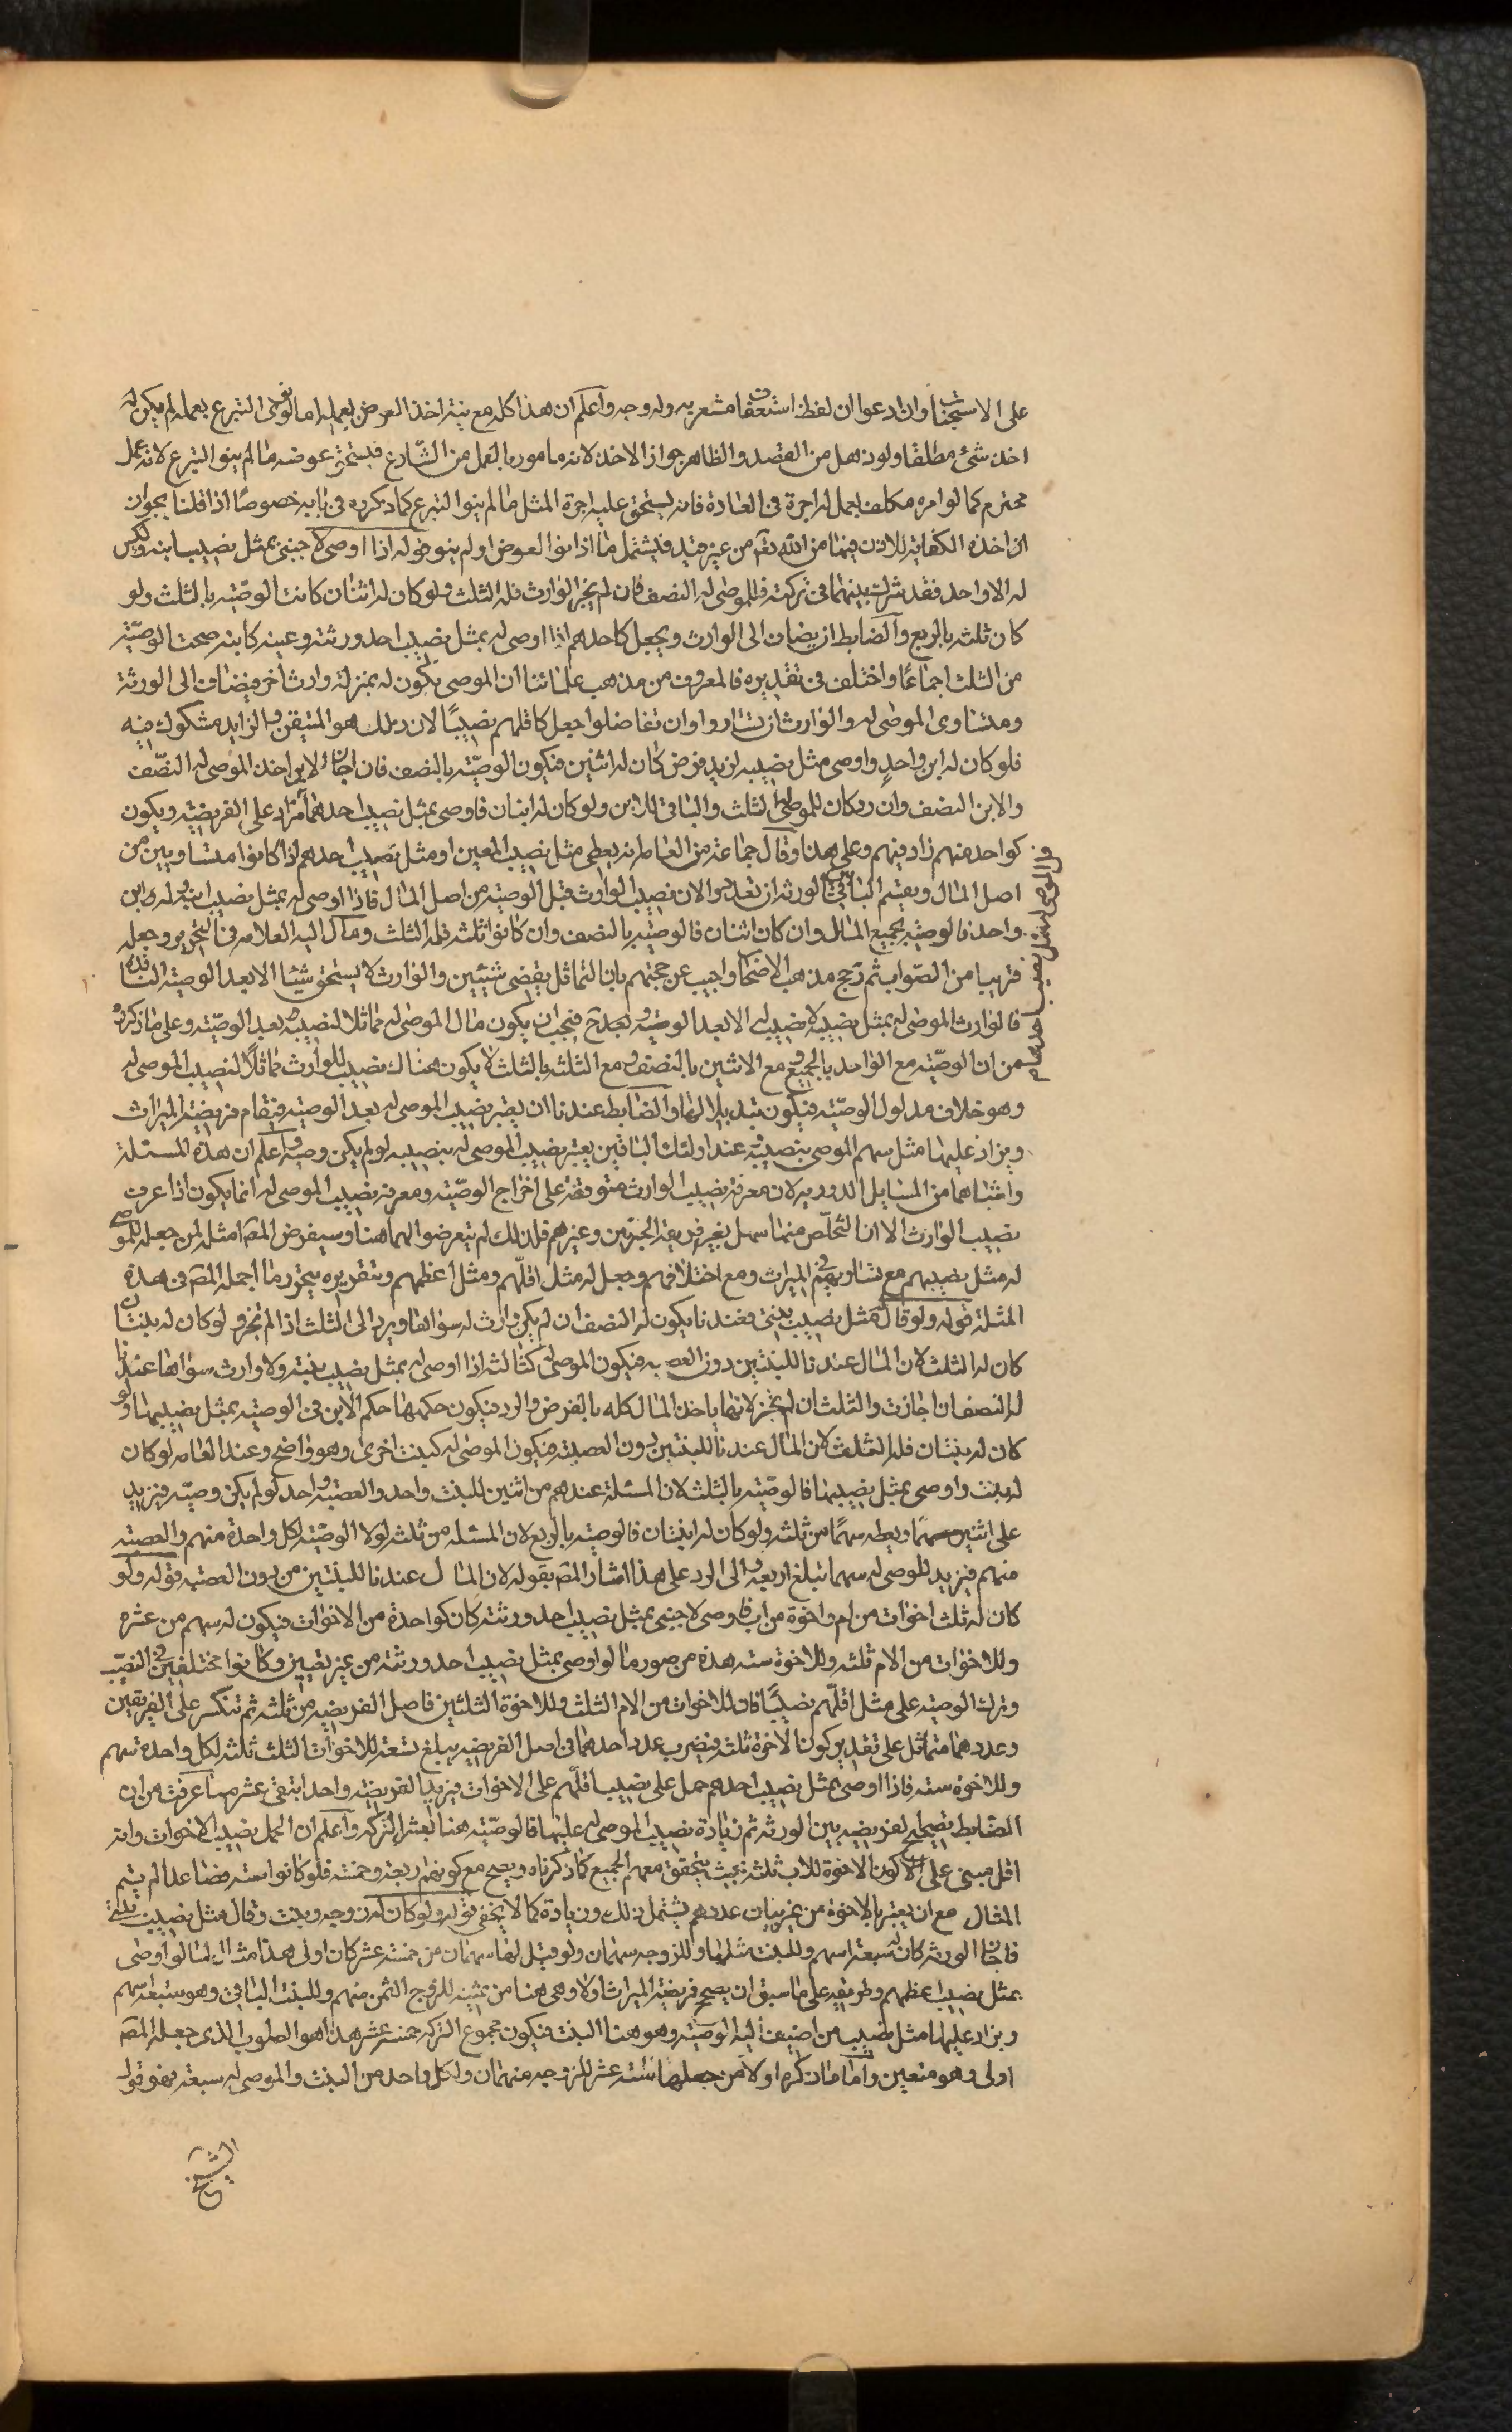 على الاستحباب وان ادعوا ان لفظ استعفاف مشعر به وله وجه واعلم ان هذا كله مع نية اخذ العوض بعمله اما لو نوى التبرع بعمله لم يكن له
اخذ شئ مطلقا ولو ذهل من القصد والظاهر جواز الاخذ لانه مامور بالعمل من الشارع فيستحق عوضه ما لم ينو التبرع لانه عمل
محترم كما لو امره مكلف بعمل له اجرة في العادة فانه يستحق عليه اجرة المثل ما لم ينو التبرع كما ذكروه في بابه خصوصا اذا قلنا بجواز
اخذه الكفاية للاذن فيها من الله تعالى من غير قيد فيشمل ما اذا نوا العوض او لم ينو قوله اذا اوصى لاجنبي بمثل نصيب ابنه وليس
له الا واحد فقد شرك بينهما في تركته فللموصى له النصف فان لم يجز الوارث فله الثلث ولو كان له اثنان كانت الوصية بالثلث ولو
كان ثلثه بالربع والضابط انه يضاف الى الوارث ويجعل كاحدهم اذا اوصى له بمثل نصيب احد ورثته وعينه كابنه صحت الوصية
من الثلث اجماعا واختلف في تقديره فالمعروف من مذهب علمائنا ان الموصى يكون له بمنزلة وارث اخر فيضاف الى الورثة
ومتساوى الموصى له والوارث ان تساووا وان تفاضلوا جعل كاقلهم نصيبا لان ذلك هو المتيقن والزايد مشكوك فيه
فلو كان له ابن واحد واوصى مثل نصيبه لزيد فرض كان له اثنين فيكون الوصية بالنصف فان اجاز الابن اخذ الموصى له النصف
والابن النصف وان رد كان للموصى له الثلث والباقى للابن ولو كان له ابنان فاوصى بمثل نصيب احدهما زاد على الفريضة ويكون
كواحد منهم زاد فيهم وعلى هذا وقال جماعة من العامة انه يعطى مثل نصيب المعين او مثل نصيب احدهم اذا كانوا متساويين من
اصل المال ويقسم الباقى بين الورثة ان تعددوا لان نصيب الوارث قبل الوصية من اصل المال فاذا اوصى له بمثل نصيب ابنه وله ابن
واحد فالوصية بجميع المال وان كان اثنان فالوصية بالنصف وان كانوا ثلثه فله الثلث ومال اليه العلامه في التحرير وجعله
قريبا من الصواب ثم رجح مذهب الاصحاب واجيب عن حجتهم بان التماثل يقضى شيئين والوارث لا يستحق شيئا الا بعد الوصية النافذة
فالوارث الموصى له بمثل نصيبه لا نصيب له الا بعد الوصية وبعد ح فيجب ان يكون مال الموصى له مماثلا لنصيبه بعد الوصية وعلى ما ذكروه
من ان الوصية مع الواحد بالجميع ومع الاثنين بالنصف ومع الثلثه بالثلث لا يكون هناك نصيب للوارث مماثلا لنصيب الموصى له
وهو خلاف مدلول الوصية فيكون تبديلا لها والضابط عندنا ان يعتبر نصيب الموصى له بعد الوصية فيقام فريضة الميراث
ويزاد عليها مثل سهم الموصى بنصيبه وعند اولئك الباقين يعتبر نصيب الموصى له بنصيبه لو لم يكن وصية واعلم ان هذه المسئلة
واشباهها من المسايل الدورية لان معرفة نصيب الوارث متوقفة على اخراج الوصية ومعرفة نصيب الموصى له انما يكون اذا عرف
نصيب الوارث الا ان التخلص منها سهل بغير طريقة الجبريين وغيرهم فلذلك لم يتعرضوا لهما هنا وسيفرض المص امثلة لمن جعل للموصى
له مثل نصيبهم مع تساويهم في الميراث ومع اختلافهم وجعل له مثل اقلهم ومثل اعظمهم وبتقريره يتحرر ما اجمله المص في هذه
المثلة قوله ولو قال له مثل نصيب بنتى فعندنا يكون له النصف ان لم يكن وارث له سواها ويرد الى الثلث اذا لم تجز ولو كان له بنتان
كان له الثلث لان المال عندنا للبنتين دون العصبة فيكون الموصى له كثالثه اذا اوصى له بمثل نصيب بنته ولا وارث سواها عندنا
له النصف ان اجازت والثلث ان لم تجز لانها ياخذ المال كله بالفرض والرد فيكون حكمها حكم الابن في الوصية بمثل نصيبهما ولو
كان له بنتان فله الثلث لان المال عندنا للبنتين دون العصبة فيكون الموصى له كبنت اخرى وهو واضح وعند العامه لو كان
له بنت واوصى بمثل نصيبها فالوصية بالثلث لان المسئلة عندهم من اثنين للبنت واحد والعصبة واحد لو لم يكن وصية فيزيد
على اثنين سهما ويعطه سهما من ثلثه ولو كان له ابنتان فالوصية بالربع لان المسئلة من ثلثه لولا الوصية لكل واحدة منهم والعصبة
منهم فيزيد للموصى له سهما تبلغ اربعه والى الرد على هذا اشار المص بقوله لان المال عندنا للبنتين من دون العصبة قوله ولو
كان له ثلث اخوات من ام واخوة من اب فاوصى لاجنبى بمثل نصيب احد ورثته كان كواحدة من الاخوات فيكون له سهم من عشره
وللاخوات من الام ثلثه وللاخوة سته هذه من صور ما لو اوصى بمثل نصيب احد ورثته من غير تعيين وكانوا مختلفين في النصيب
وترك الوصية على مثل اقلهم نصيبا فان للاخوات من الام الثلث وللاخوة الثلثين فاصل الفريضة من ثلثه ثم تنكسر على الفريقين
وعددهما متماثل على تقدير كون الاخوة ثلثه فيضرب عدد احدهما في اصل الفريضة يبلغ تسعة للاخوات الثلث ثلثه لكل واحدة سهم
وللاخوة سته فاذا اوصى بمثل نصيب احدهم حمل على نصيب اقلهم على الاخوات فيزيد الفريضة واحدا يتقى عشر مما عرفت من ان
الضابط تصحيح الفريضة بين الورثة ثم زيادة نصيب الموصى له عليها فالوصية هنا بعشر التركة واعلم ان الحمل نصيب الاخوات وانه
اقل مبنى على كون الاخوة للاب ثلثه بحيث يتحقق معهم الجميع كما ذكرناه ويصح مع كونهم اربعة وخمسة فلو كانوا ستة فضاعدا لم يتم
المثال مع ان يعتبر بالاخوة من غير بيان عددهم يشتمل ذلك وزيادة كما لا يخفى قوله ولو كان له زوجه وبنت وقال مثل نصيب بنتى
فاجاز الورثة كان له سبعة اسهم وللبنت مثلها وللزوجه سهمان ولو قيل لها سهمان من خمسة عشر كان اولى هذا مثال لما لو اوصى
بمثل نصيب اعظمهم وطريقه على ما سبق ان يصحح فريضة الميراث اولا وهى هنا من ثمنيه للزوج الثمن منهم وللبنت الباقى وهو سبعة سهم
ويزاد عليها مثل نصيب من اضيف اليه الوصية وهو هنا البنت فيكون مجموع التركة خمسة عشر هذا هو الصواب الذى جعله المص
اولى وهو متعين واما ما ذكره اولا من جعلها سته عشر للزوجه منهما ولكل واحد من البنت والموصى له سبعة فهو قول
الشيخ